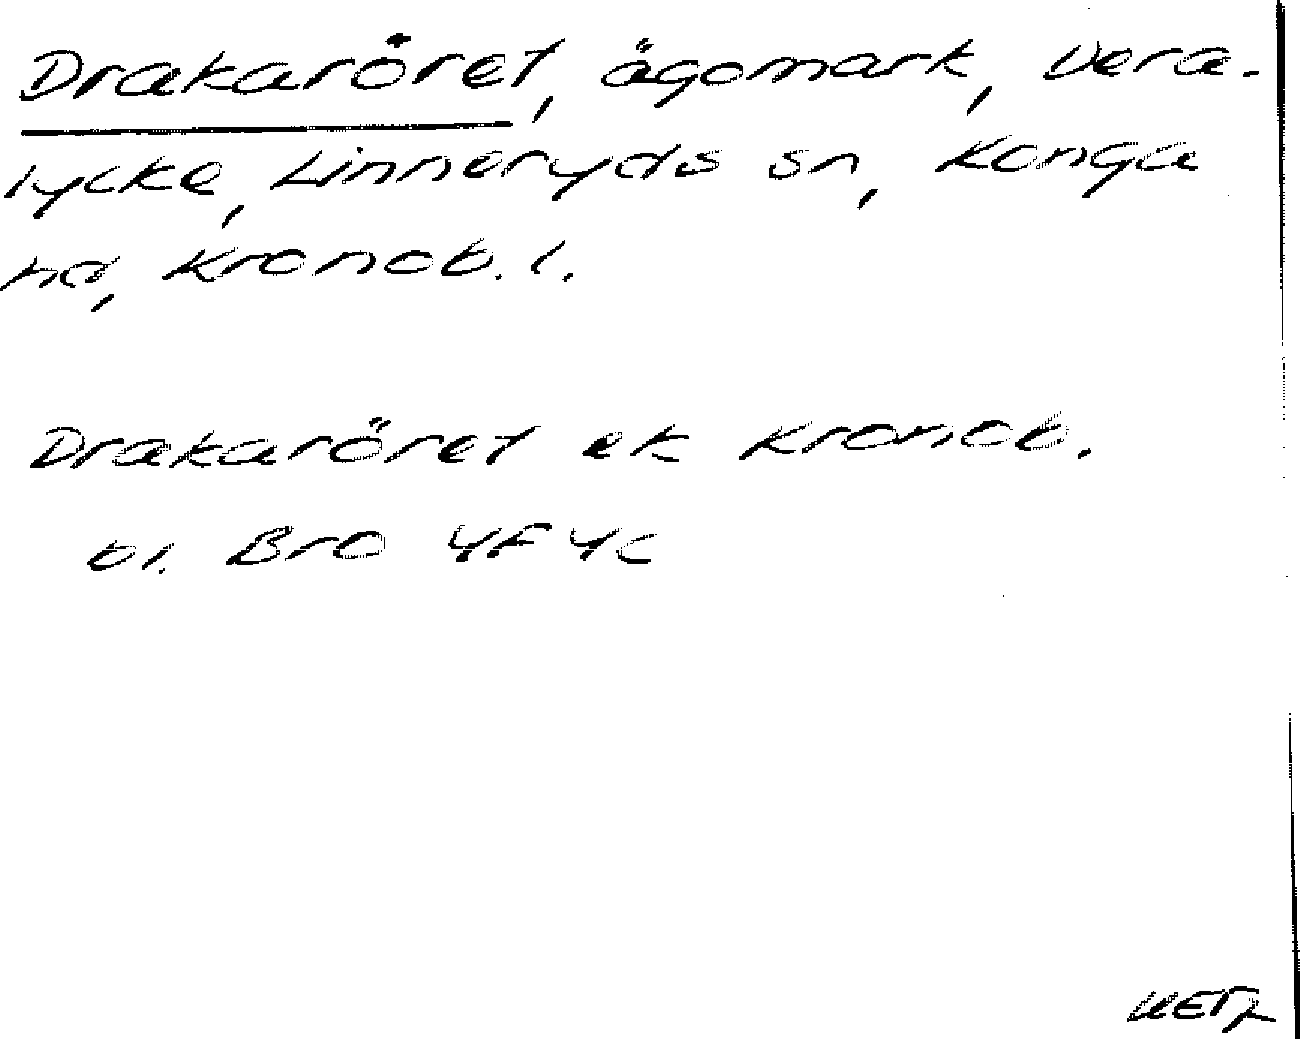 Drakaröret, ägomark, Vera-
lycke, Linneryds sn, Konga
hd, Kronob. l.
Drakaröret ek Kronob.
bl. Bro 4F 4c